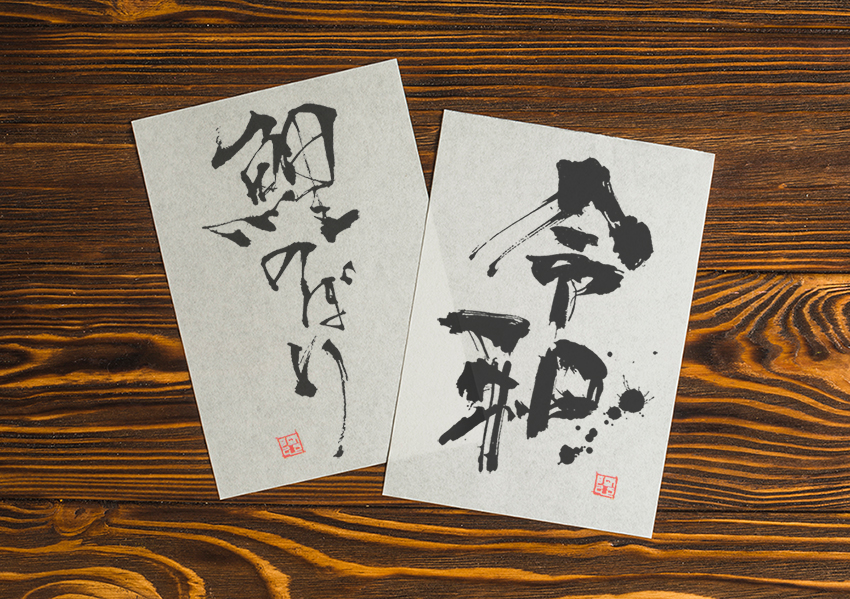 鯉のぼり
令和